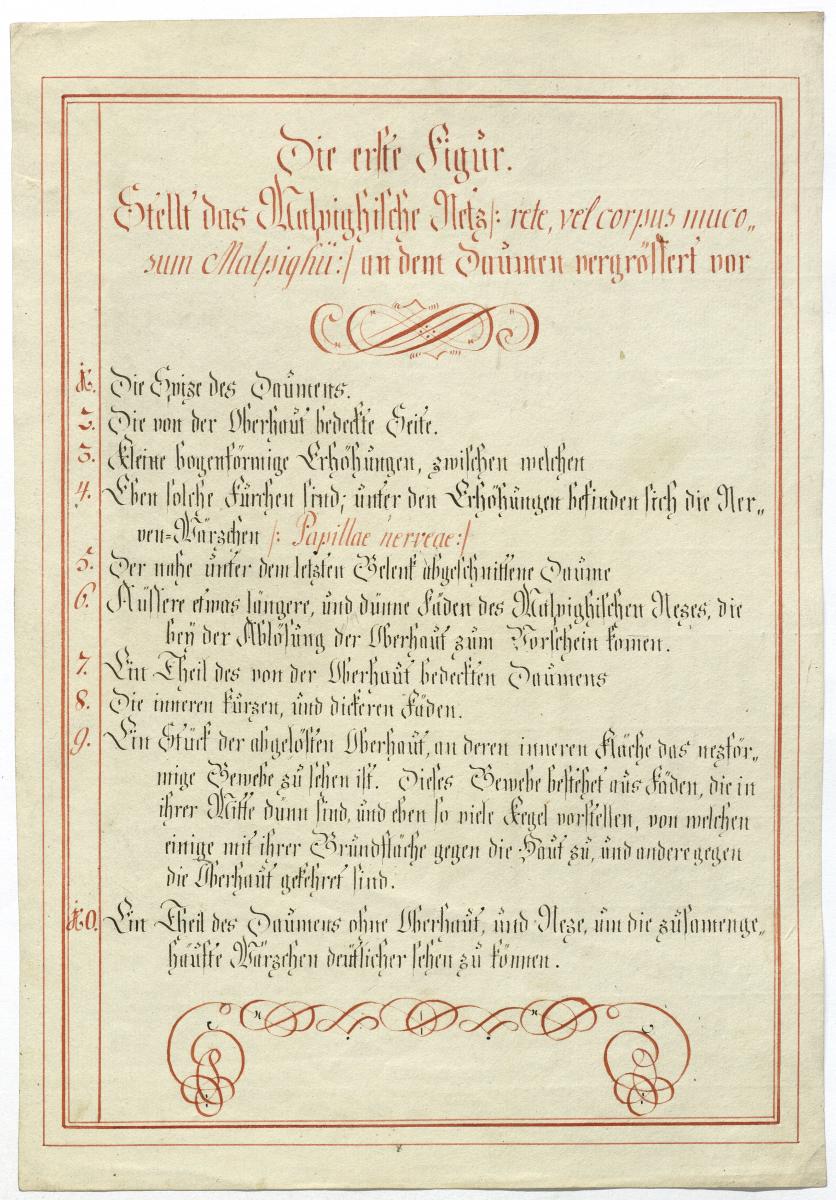 Die erste Figur.
Stellt das Malpighische Netz /: rete, vel corpus muco„
sum Malpighii :/ an dem Daumen vergrössert vor
1. Die Spize des Daumens.
2. Die von der Oberhaut bedeckte Seite.
3. Kleine bogenförmige Erhöhungen, zwischen welchen
4. Eben solche Furchen sind; unter den Erhöhungen befinden sich die Ner„
ven=Wärzchen /: Papillae nerveae :/
5. Der nahe unter dem letzten Gelenk abgeschnittene Daume
6. Äüssere etwas längere, und dünne Fäden des Malpighischen Nezes, die
bey der Ablösung der Oberhaut zum Vorschein kom̅en.
7. Ein Theil des von der Oberhaut bedeckten Daumens
8. Die inneren kurzen, und dickeren Fäden.
9. Ein Stück der abgelösten Oberhaut, an deren inneren Fläche das nezför„
mige Gewebe zu sehen ist. Dieses Gewebe bestehet aus Fäden, die in
ihrer Mitte dünn sind, und eben so viele Kegel vorstellen, von welchen
einige mit ihrer Grundfläche gegen die Haut zu, und andere gegen
die Oberhaut gekehret sind.
10. Ein Theil des Daumens ohne Oberhaut, und Neze, um die zusamenge„
häufte Wärzchen deutlicher sehen zu können.